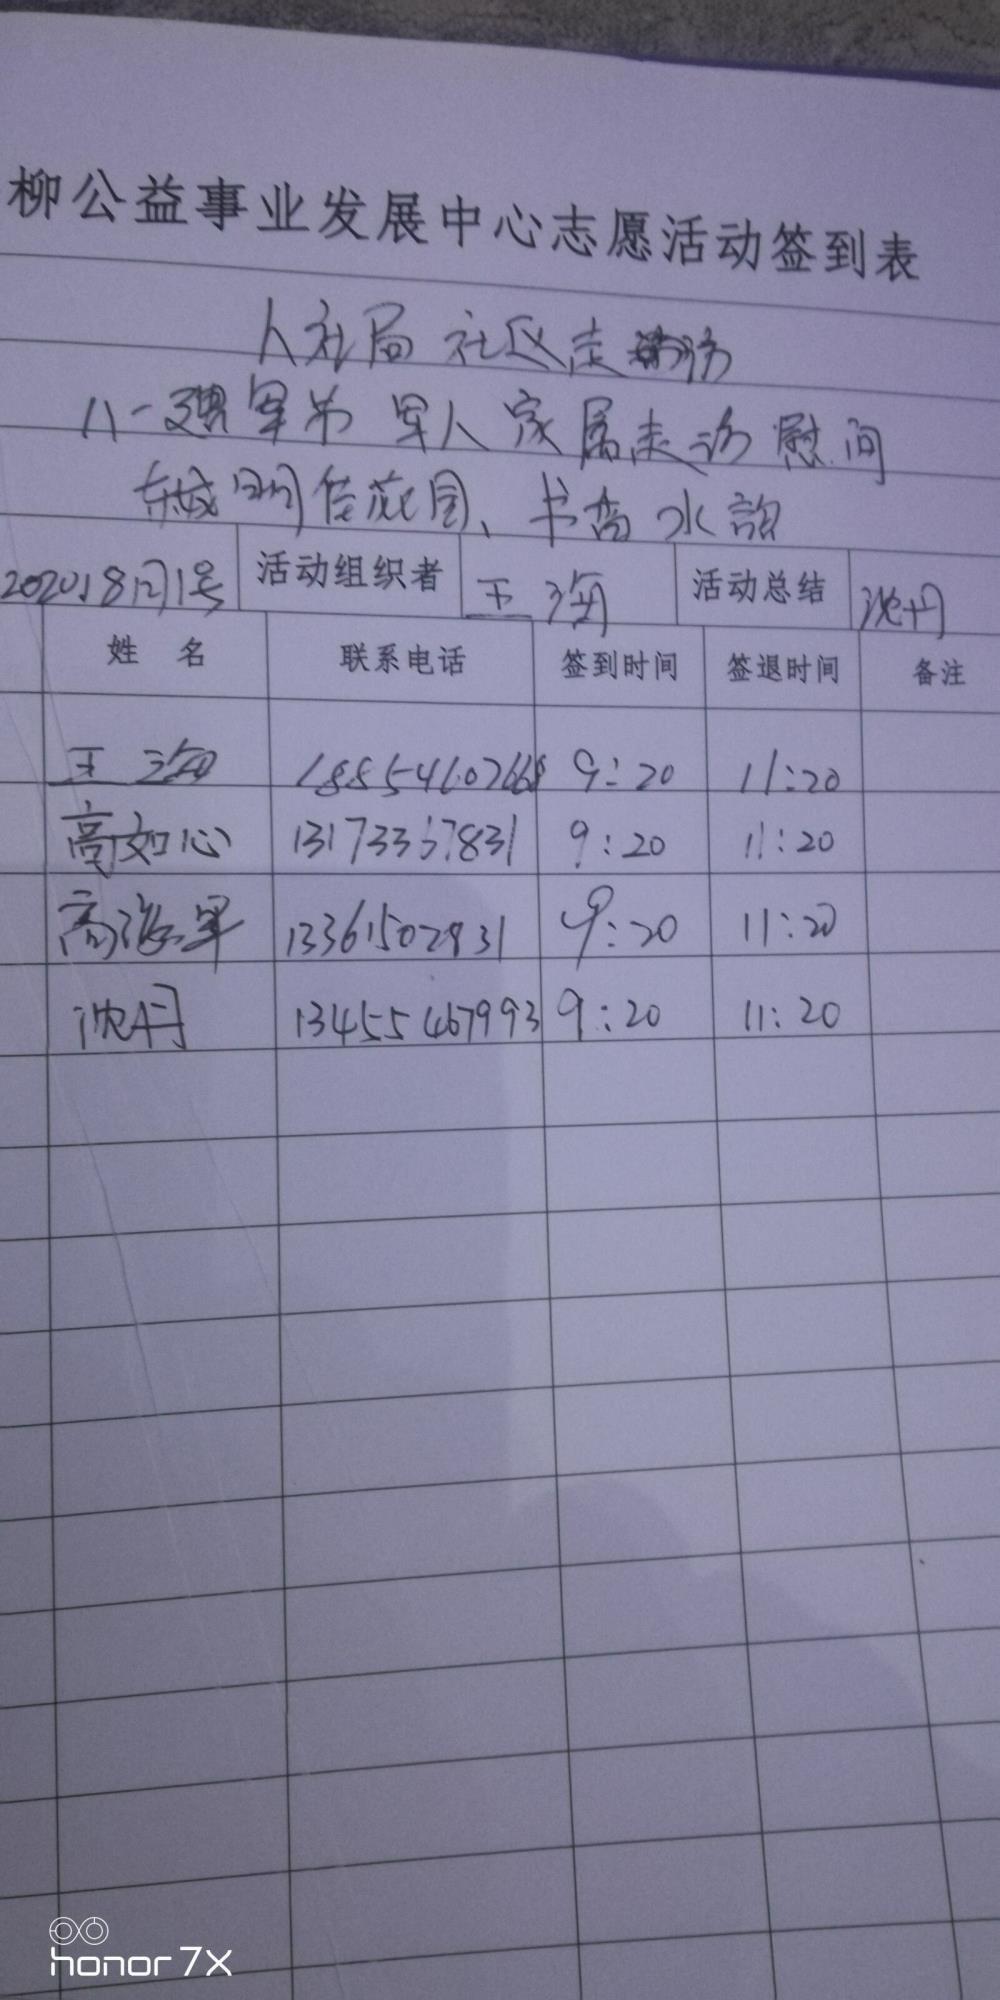 柳公益事业发展中心志愿活动签到表
人社局 社区走访
八一建军节 军人家属走访慰问
东城 佳苑园、书香水韵
2020.8月1号 活动组织者 王海 活动总结 沈丹
姓 名 联系电话 签到时间 签退时间 备注
王海 18854607668 9:20 11:20
高如心 13173367831 9:20 11:20
高海军 13361502831 9:20 11:20
沈丹 13455467993 9:20 11:20
honor 7X